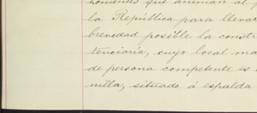 hombres que animan al p
la República para llevar
brevedad posible la constr
tenciaria, cuyo local ma
de persona competente es
nilla, situado á espalda